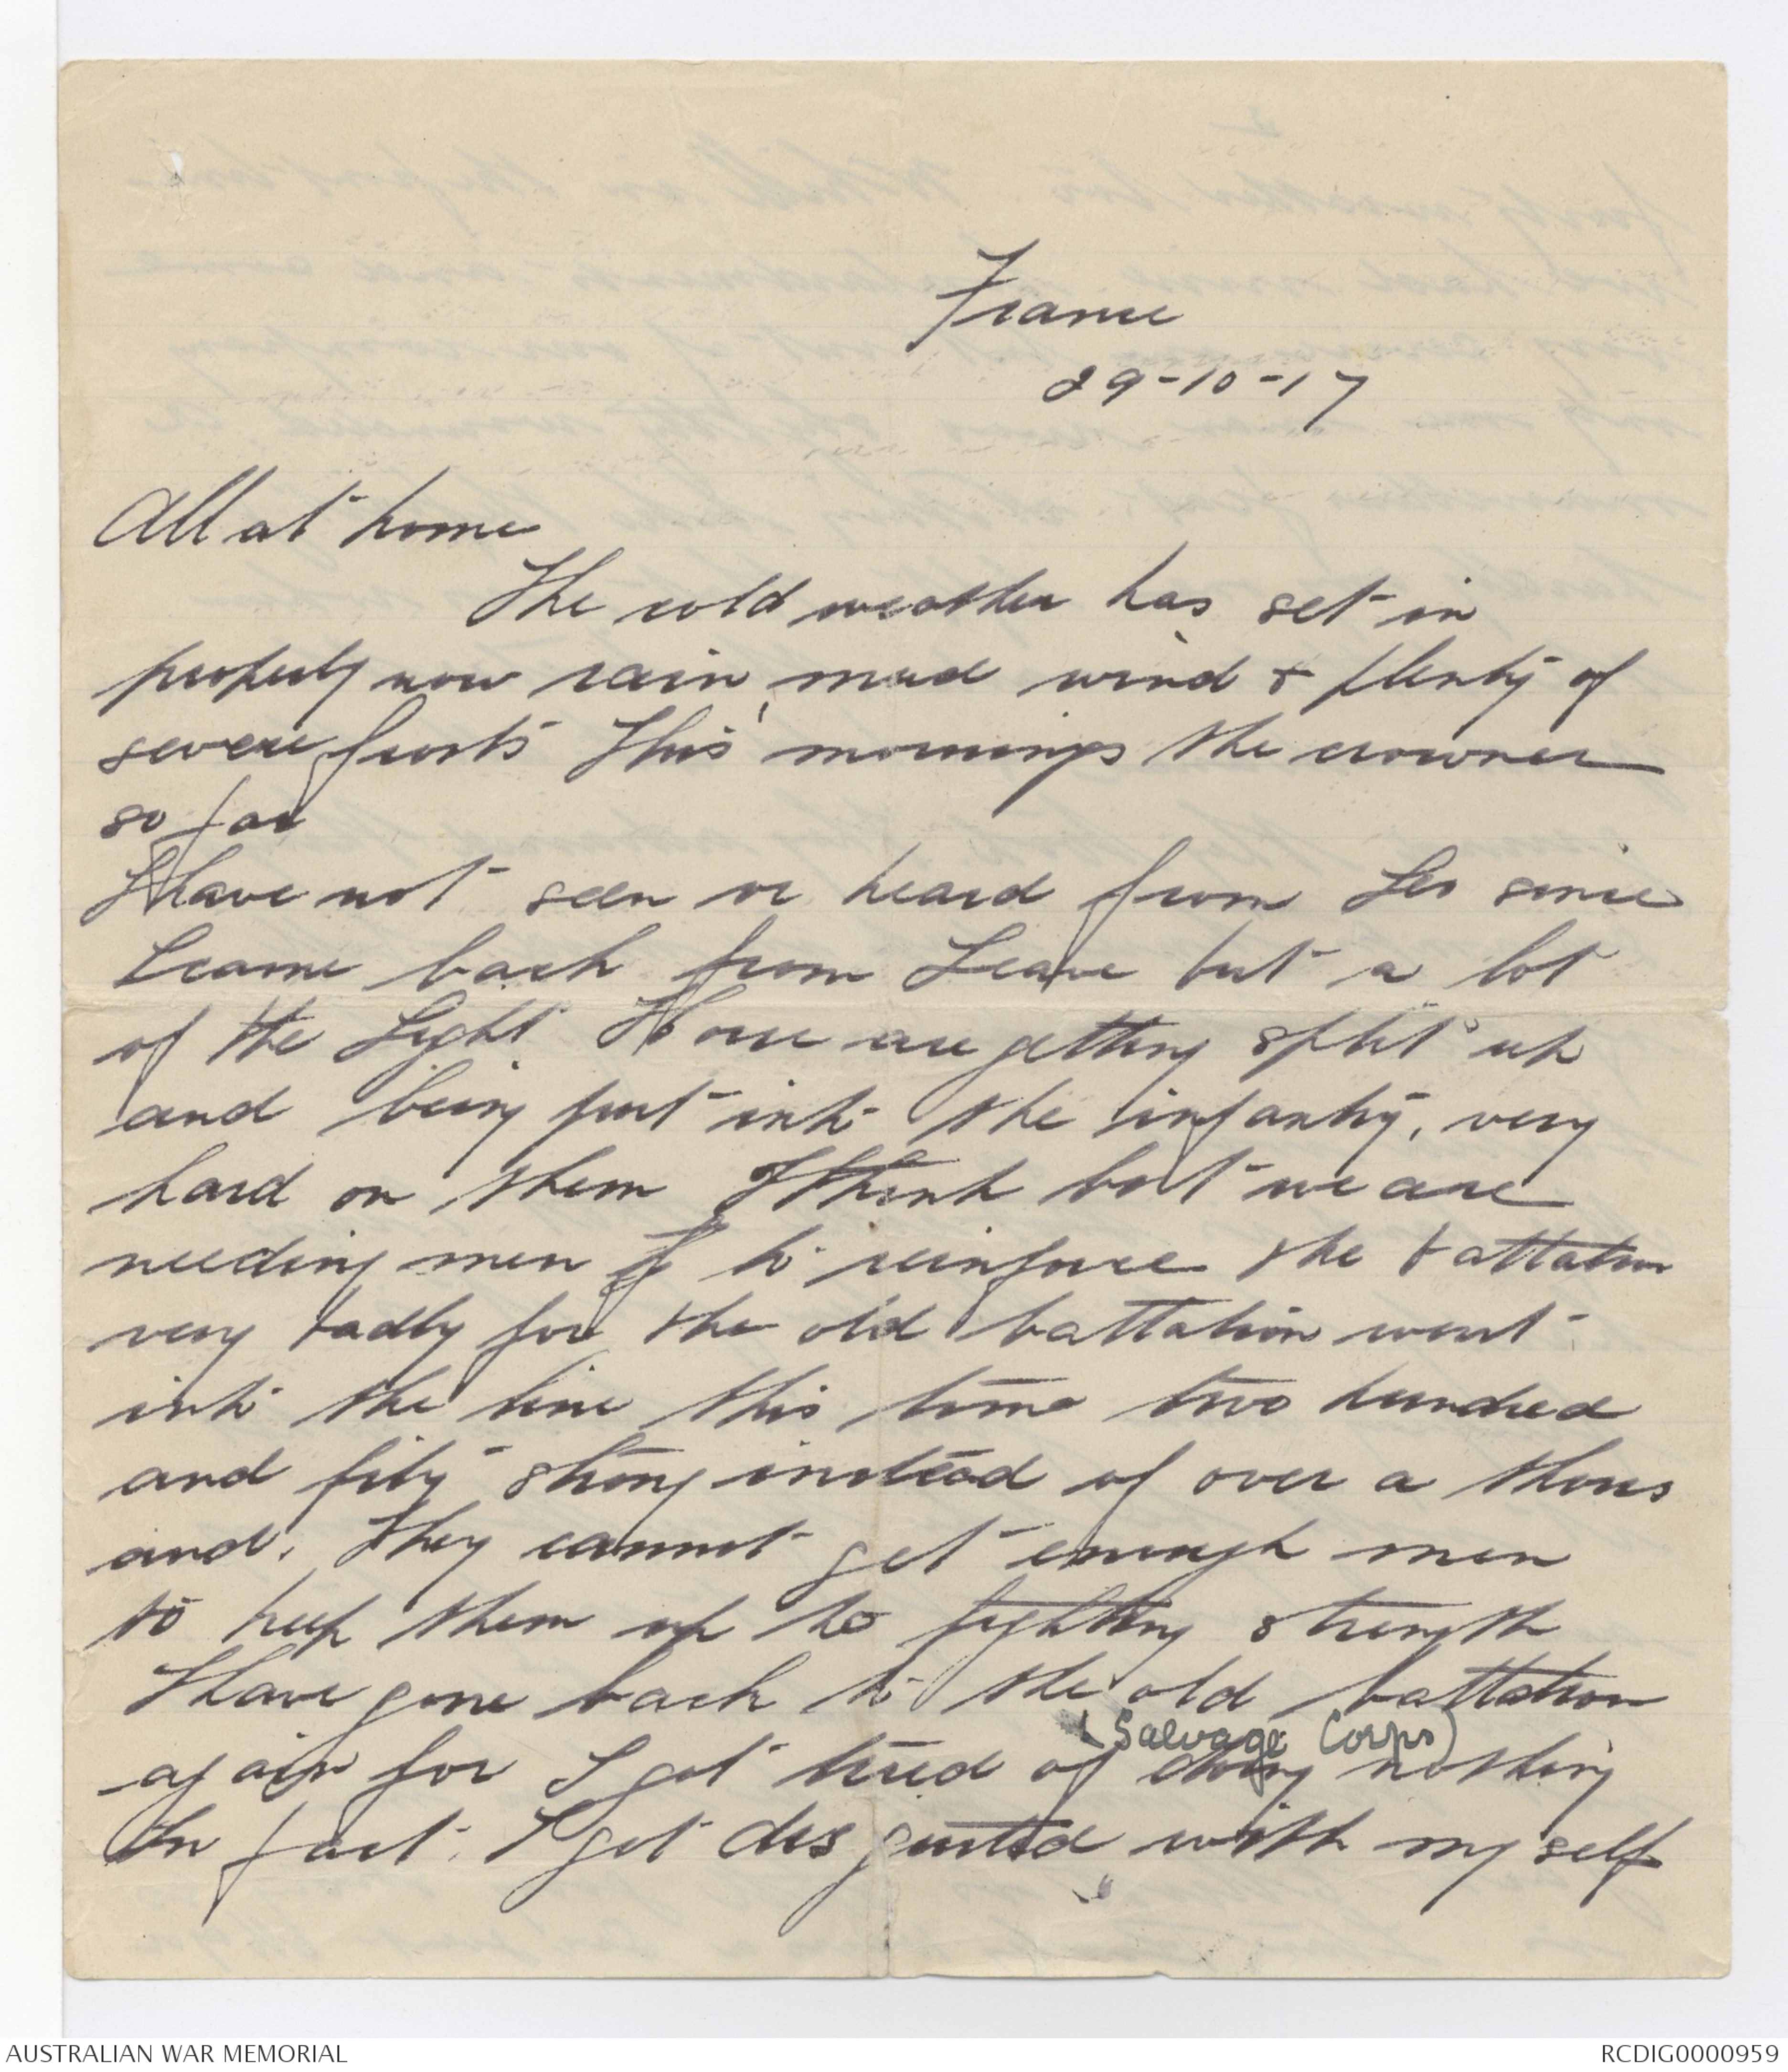 France
29-10-17
All at home
The cold weather has set in
properly now rain, mud wind & plenty of
severe frosts This mornings the crowner
so far
I have not seen or heard from Les since
I came back from Leave but a lot
of the Light Horse are getting split up
and being put into the infantry, very
hard on them I think but we are
needing men to reinforce the battalion
very badly for the old battalion went
into the line this time two hundred
and fifty strong instead of over a thous
and. They cannot get enough men
to keep them up to fighting strength
I have gone back to the old battalion
(Salvage Corps)
again for I got tired of doing nothing
In fact I got disgusted with my self
AUSTRALIAN WAR MEMORIAL
RCDIG0000959